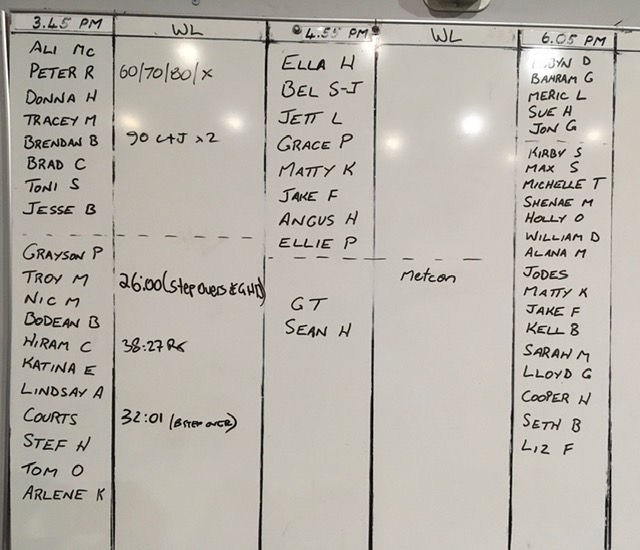 3.45 PM
WL
4.55 PM
WL
6.05 PM
ALI MC
PETER R
60/70/80/X
DONNA H
TRACEY M
BRENDAN B
90 C+J x2
BRAD C
TONI S
JESSE B
GRAYSON P
TROY M
26:00 (STEP OVERS & GHD)
NIC M
BODEAN B
HIRAM C
38:27 Rx
KATINA E
LINDSAY A
COURTS
32:01
STEF H
TOM O
ARLENE K
ELLA H
BEL S-J
JETT L
GRACE P
MATTY K
JAKE F
ANGUS H
ELLIE P
Metcon
GT
SEAN H
D
BAHRAM G
MERIC L
SUE H
JON G
KIRBY S
MAX S
MICHELLE T
SHENAE M
HOLLY O
WILLIAM D
ALANA M
JODES
MATTY K
JAKE F
KELL B
SARAH M
LLOYD G
COOPER H
SETH B
LIZ F